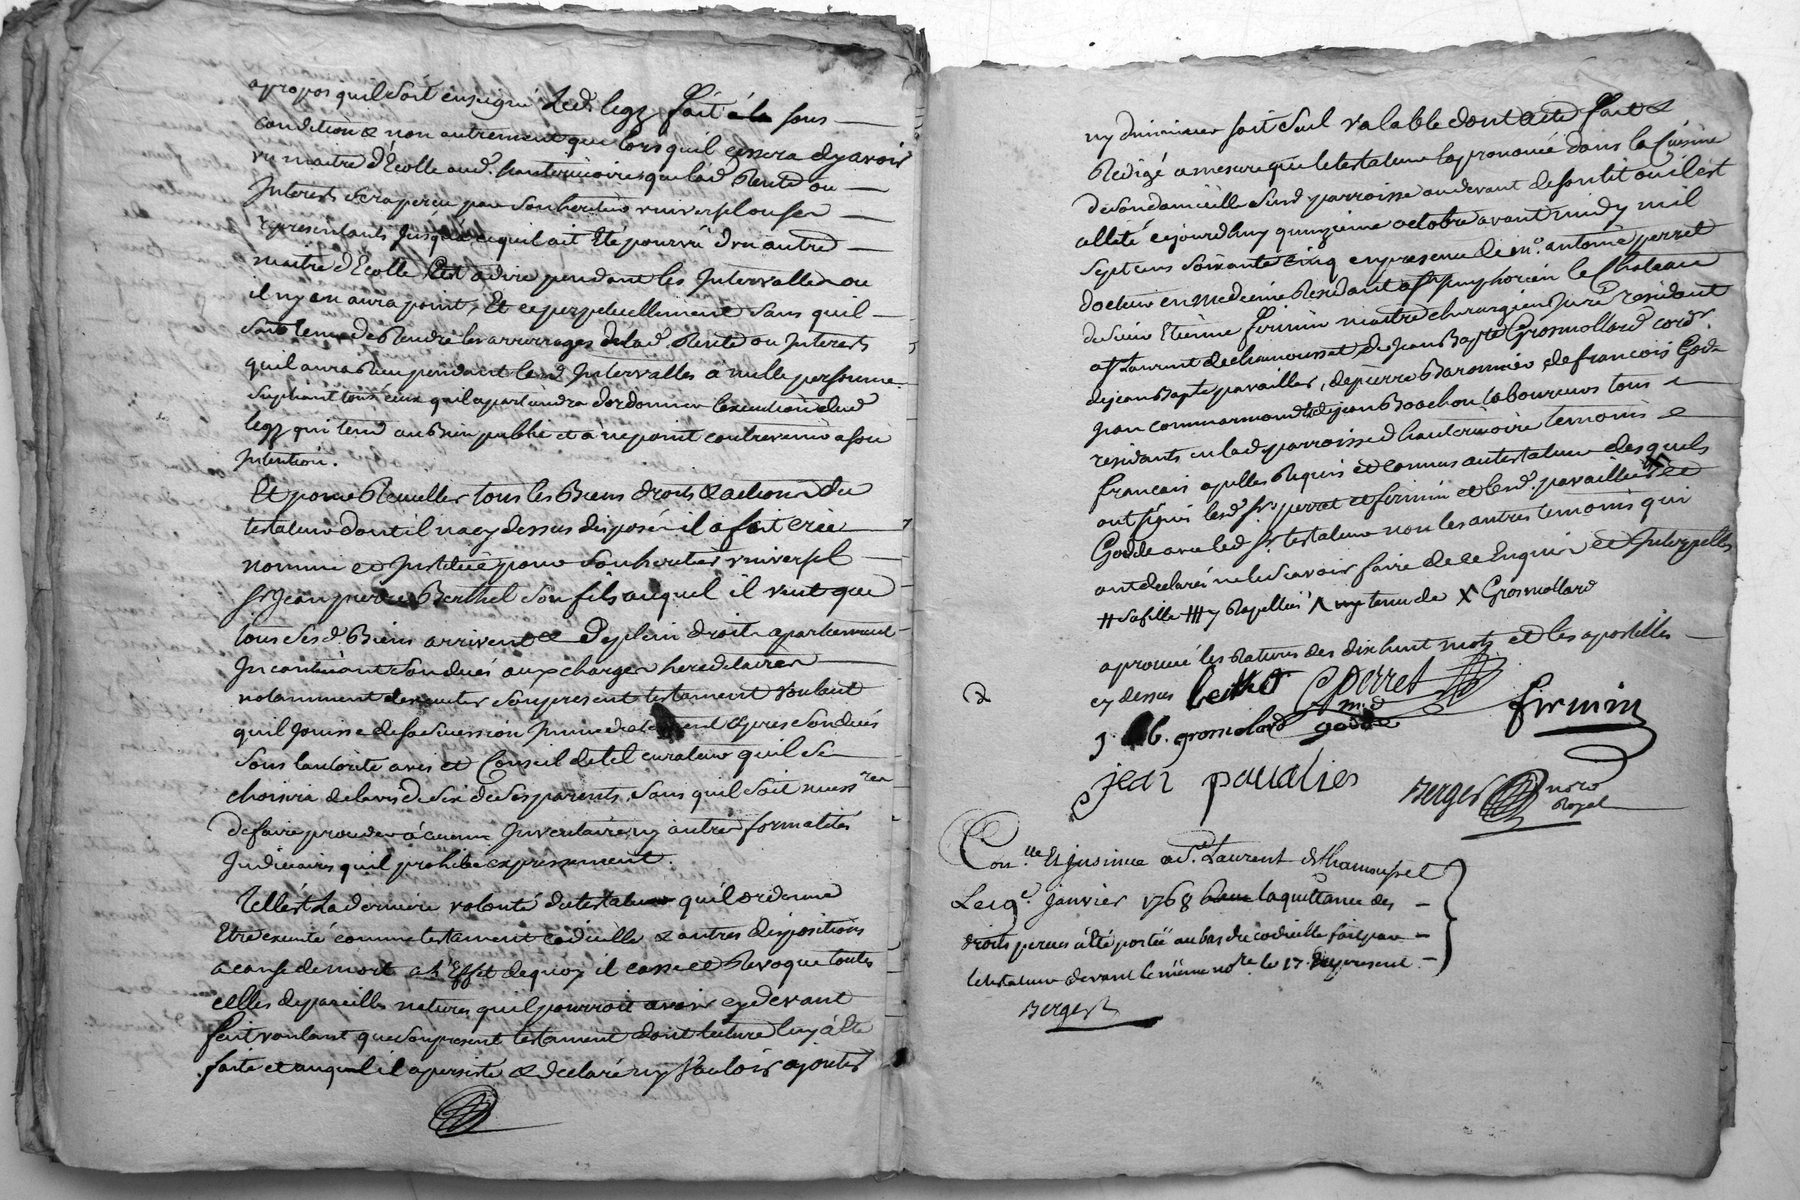 apropos quil soit enseigné Led. legz fait à la sous
condition & non autrement que lors quil cessera dy avoir
un maitre d'Ecolle aud. hauterivoire que lad. Rente ou
Interets sera perçu par son heritier universel ou ses
representants jusqu'à ce quil ait Eté pourvû d'un autre
maitre d'Ecolle C'est adire pendant les Intervalles ou
il ny en aura point, Et ce perpetuellement sans quil
soit tenu de Rendre les arrerages delad. Rente ou Interets
quil aura Reçu pendant lesd. Intervalles a nulle personne
supliant tous ceux quil apartiendra dordonner lexecution dud.
legz qui tend au Bien public et a ne point contrevenir a son
Intention.
Et pour Recueillir tous les Biens droits & actions du
testateur dont il na cy dessus disposé il a fait crée
nommé et Institué pour son heritier universel
sr. Jean pierre Berthet son fils auquel il veut que
tous sesd. Biens arrivent & de plein droit apartiennent
Incontinant son decés aux charges hereditaires
notamment dexecuter son present testament voulant
quil jouisse de sa sucession Immediatement apres son decés
sous lautorité avis et Conseil de tel curateur quil se
choisira de lavis de six de ses parents, sans quil soit necess.res
de faire proceder à aucun Inventaire ny autres formalités
Judiciaires quil prohibe expressement.
Telle est La derniere volonté du testateur quil ordonne
Etre executé comme testament codicille & autres dispositions
a cause de mort a l'Effet dequoy il casse et Revoque toutes
celles de pareilles natures quil pourroit avoir cy devant
fait voulant que son present testament dont lecture luy à Eté
faite et auquel il a persisté & declaré ny vouloir ajouter
ny diminuer soit seul valable dont acte fait &
Redigé a mesure que le testateur la prononcé dans la Cuisine
de son domicille susd. parroisse au devant de son lit ou il est
allité cejourdhuy quinzieme octobre avant midy mil
sept cens soixante cinq en presence de me. antoine perret
docteur en Medecine Residant a st simphorien le Chateau
de sieur Etienne firmin maitre chirurgien Juré residant
a st Laurent de chamousset de Jean Bapte Grosmollard cordr.
de jean Bapte pavailler, de pierre Baronnier, de francois Godde
jean commarmond & de jean Boachon laboureurs tous
residants en lad. parroisse d'hauterivoire temoins
francais apellés Requis et connus au testateur desquels
ont signés lesd. srs perret et firmin et lesd. pavailler et
Godde avec led. sr. testateur non les autres temoins qui
ont declarés ne le scavoir faire de ce Enquis et Interpellés
# sa fille ## y Rapellés Λ X Grosmollard
aprouvé les Ratures des dix huit mots et les apostilles
cy dessus berthet Perret m.d firmin
J. B. grosmolard godde
jean pavalies Berger no.re Royal
Con.lle Et jnsinué a St. Laurent de Chamousset
Le 19.e janvier 1768 laquittance des
droits percus à été portée au bas du codicille fait par
le testateur devant le même no.re le 17. du present
Berger